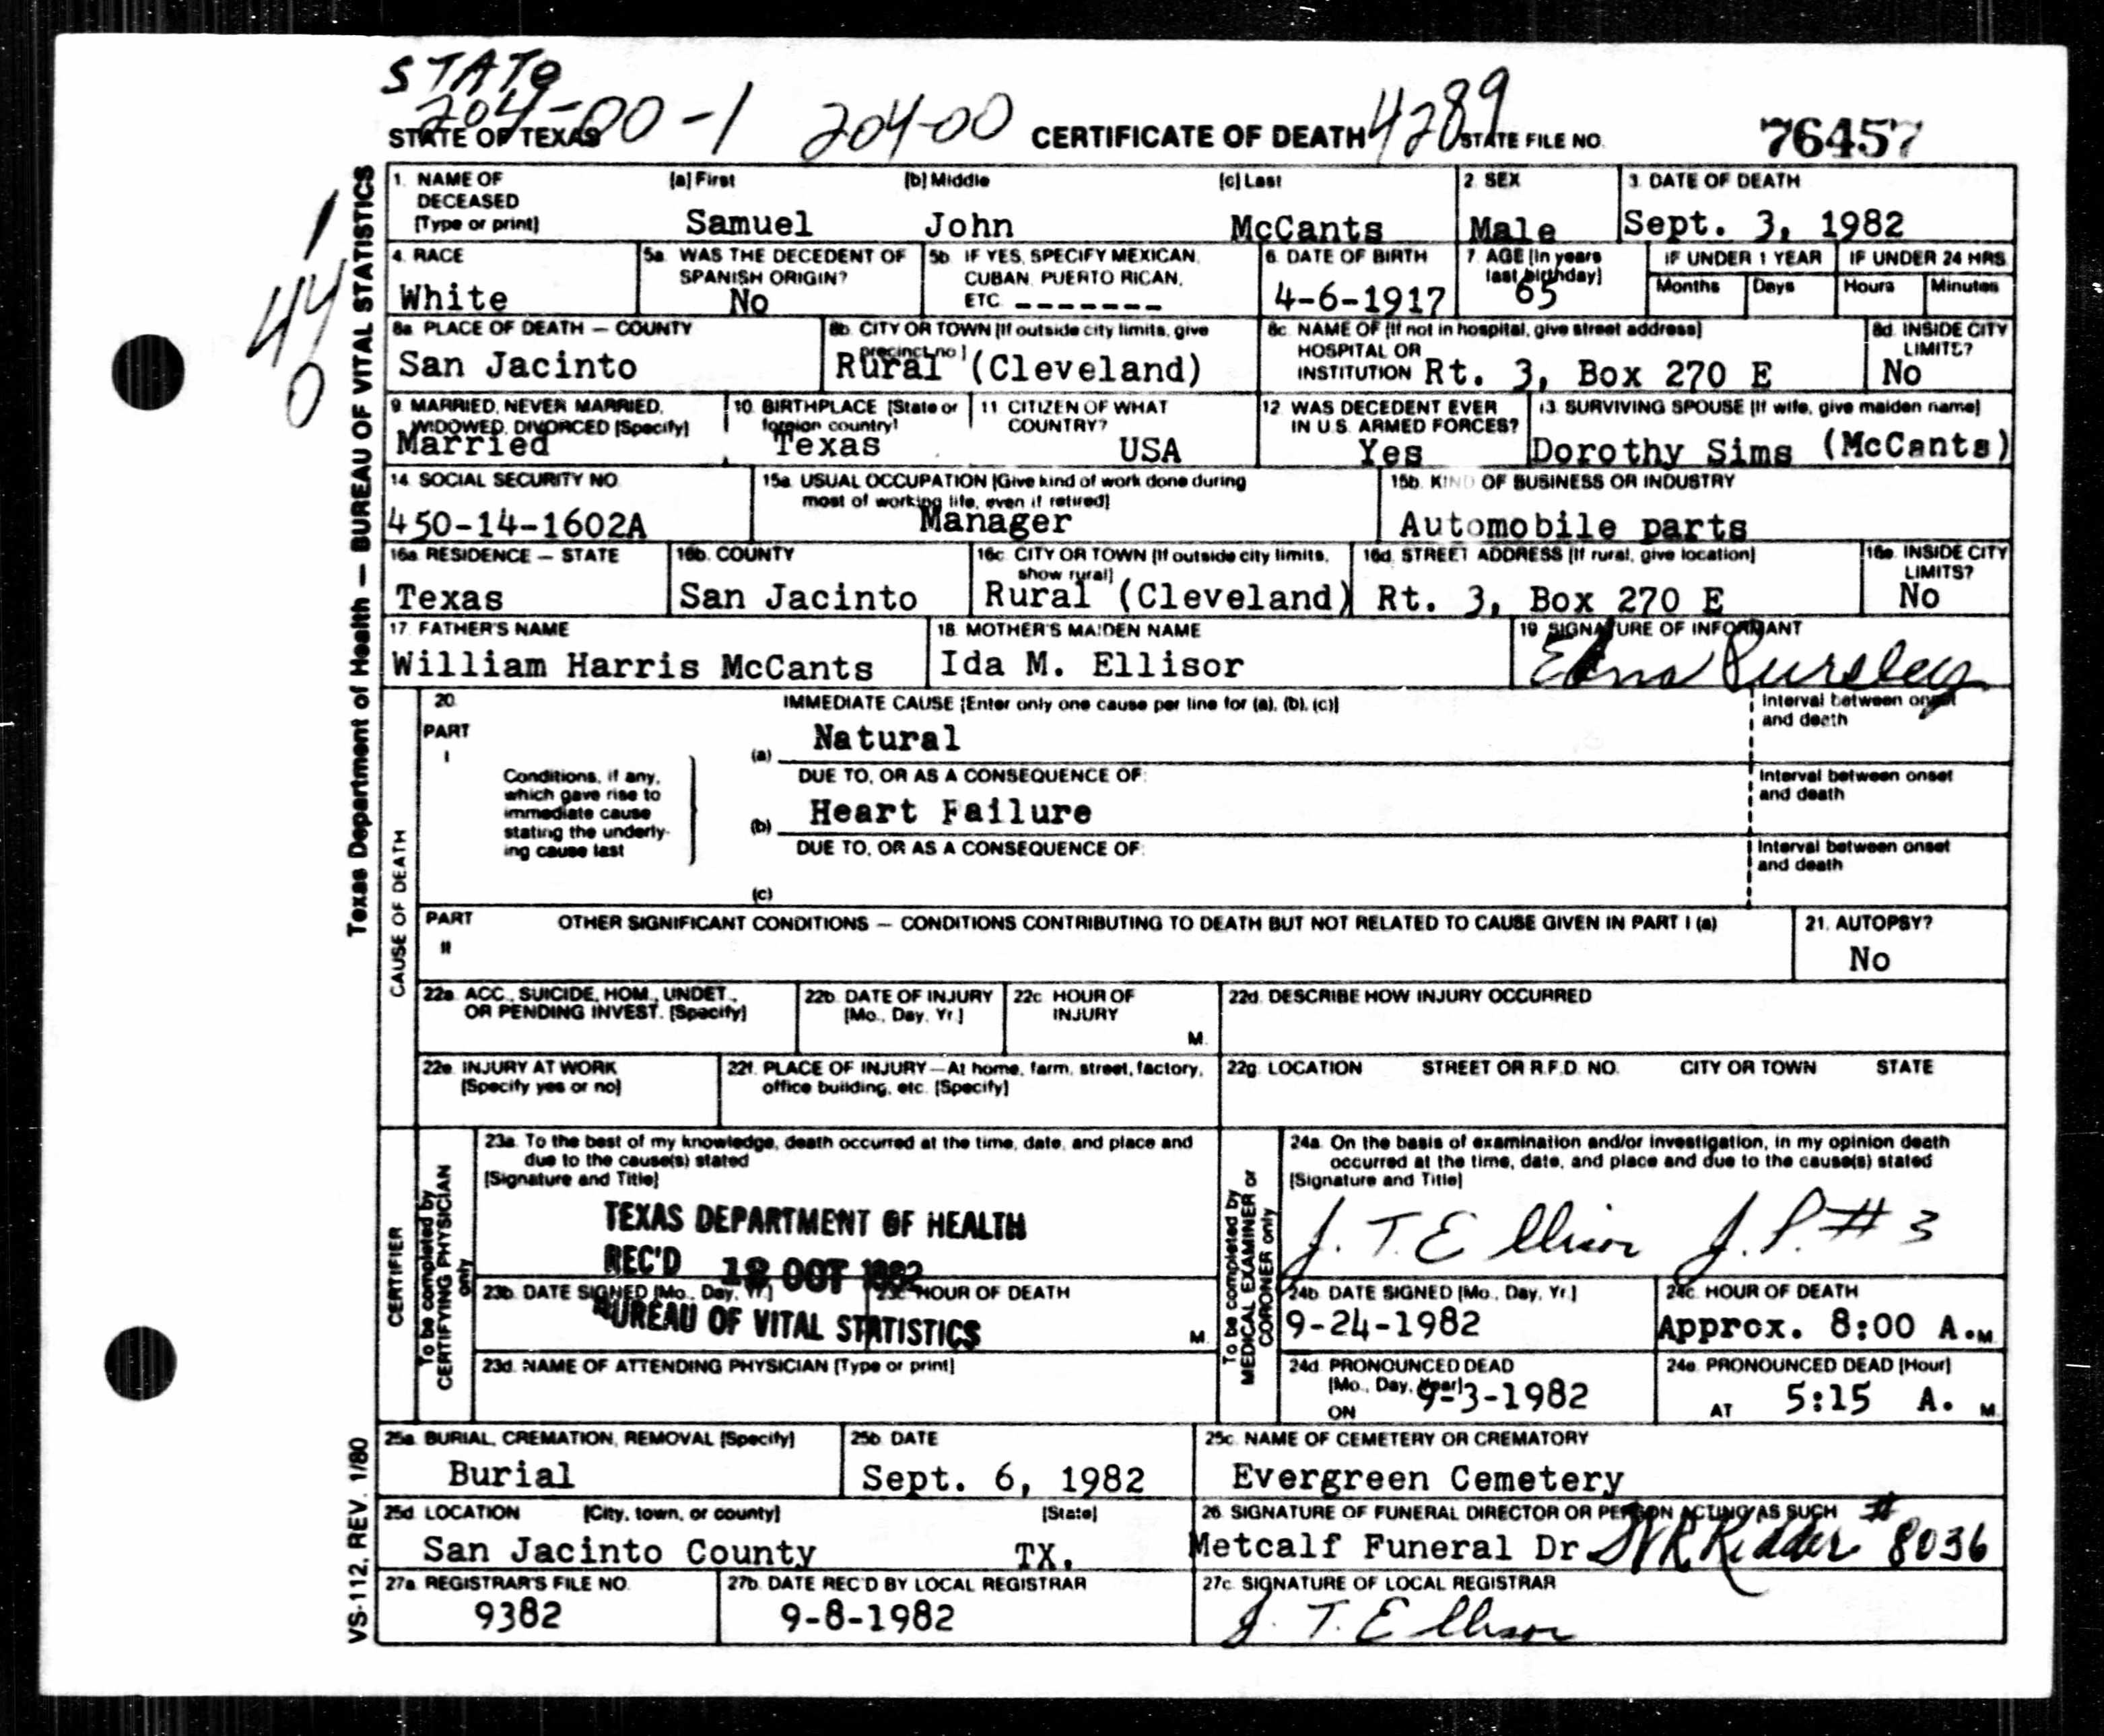 STATe
204-00-1 204-00 4289
STATE OF TEXAS CERTIFICATE OF DEATH STATE FILE NO. 76457
1. NAME OF DECEASED [Type or print] [a] First [b] Middle [c] Last 2. SEX 3. DATE OF DEATH
Samuel John McCants Male Sept. 3, 1982
4. RACE 5a. WAS THE DECEDENT OF SPANISH ORIGIN? 5b. IF YES, SPECIFY MEXICAN, CUBAN, PUERTO RICAN, ETC. 6. DATE OF BIRTH 7. AGE [In years last birthday] IF UNDER 1 YEAR IF UNDER 24 HRS
Months Days Hours Minutes
White No ------- 4-6-1917 65
8a. PLACE OF DEATH — COUNTY 8b. CITY OR TOWN [If outside city limits, give precinct no.] 8c. NAME OF [If not in hospital, give street address] HOSPITAL OR INSTITUTION 8d. INSIDE CITY LIMITS?
San Jacinto Rural (Cleveland) Rt. 3, Box 270 E No
9. MARRIED, NEVER MARRIED, WIDOWED, DIVORCED [Specify] 10. BIRTHPLACE [State or foreign country] 11. CITIZEN OF WHAT COUNTRY? 12. WAS DECEDENT EVER IN U.S. ARMED FORCES? 13. SURVIVING SPOUSE [If wife, give maiden name]
Married Texas USA Yes Dorothy Sims (McCants)
14. SOCIAL SECURITY NO. 15a. USUAL OCCUPATION [Give kind of work done during most of working life, even if retired] 15b. KIND OF BUSINESS OR INDUSTRY
450-14-1602A Manager Automobile parts
16a. RESIDENCE — STATE 16b. COUNTY 16c. CITY OR TOWN [If outside city limits, show rural] 16d. STREET ADDRESS [If rural, give location] 16e. INSIDE CITY LIMITS?
Texas San Jacinto Rural (Cleveland) Rt. 3, Box 270 E No
17. FATHER'S NAME 18. MOTHER'S MAIDEN NAME 19. SIGNATURE OF INFORMANT
William Harris McCants Ida M. Ellisor Edna Pursley
20. IMMEDIATE CAUSE [Enter only one cause per line for (a), (b), (c)] Interval between onset and death
PART I
(a) Natural
Conditions, if any, which gave rise to immediate cause stating the underlying cause last
DUE TO, OR AS A CONSEQUENCE OF: Interval between onset and death
(b) Heart Failure
DUE TO, OR AS A CONSEQUENCE OF: Interval between onset and death
(c)
PART II OTHER SIGNIFICANT CONDITIONS — CONDITIONS CONTRIBUTING TO DEATH BUT NOT RELATED TO CAUSE GIVEN IN PART I (a) 21. AUTOPSY?
No
22a. ACC., SUICIDE, HOM., UNDET., OR PENDING INVEST. [Specify] 22b. DATE OF INJURY [Mo., Day, Yr.] 22c. HOUR OF INJURY M. 22d. DESCRIBE HOW INJURY OCCURRED
22e. INJURY AT WORK [Specify yes or no] 22f. PLACE OF INJURY—At home, farm, street, factory, office building, etc. [Specify] 22g. LOCATION STREET OR R.F.D. NO. CITY OR TOWN STATE
23a. To the best of my knowledge, death occurred at the time, date, and place and due to the cause(s) stated
[Signature and Title]
TEXAS DEPARTMENT OF HEALTH
REC'D 18 OCT 1982
BUREAU OF VITAL STATISTICS
23b. DATE SIGNED [Mo., Day, Yr.] 23c. HOUR OF DEATH M.
23d. NAME OF ATTENDING PHYSICIAN [Type or print]
24a. On the basis of examination and/or investigation, in my opinion death occurred at the time, date, and place and due to the cause(s) stated
[Signature and Title]
J. T. Ellisor J. P. # 3
24b. DATE SIGNED [Mo., Day, Yr.] 24c. HOUR OF DEATH
9-24-1982 Approx. 8:00 A.M.
24d. PRONOUNCED DEAD [Mo., Day, Year] 24e. PRONOUNCED DEAD [Hour]
ON 9-3-1982 AT 5:15 A. M.
25a. BURIAL, CREMATION, REMOVAL [Specify] 25b. DATE 25c. NAME OF CEMETERY OR CREMATORY
Burial Sept. 6, 1982 Evergreen Cemetery
25d. LOCATION [City, town, or county] [State] 26. SIGNATURE OF FUNERAL DIRECTOR OR PERSON ACTING AS SUCH
San Jacinto County TX. Metcalf Funeral Dr # 8036
27a. REGISTRAR'S FILE NO. 27b. DATE REC'D BY LOCAL REGISTRAR 27c. SIGNATURE OF LOCAL REGISTRAR
9382 9-8-1982 J. T. Ellisor
Texas Department of Health — BUREAU OF VITAL STATISTICS
VS-112, REV. 1/80
CAUSE OF DEATH
CERTIFIER
To be completed by CERTIFYING PHYSICIAN only
To be completed by MEDICAL EXAMINER or CORONER only